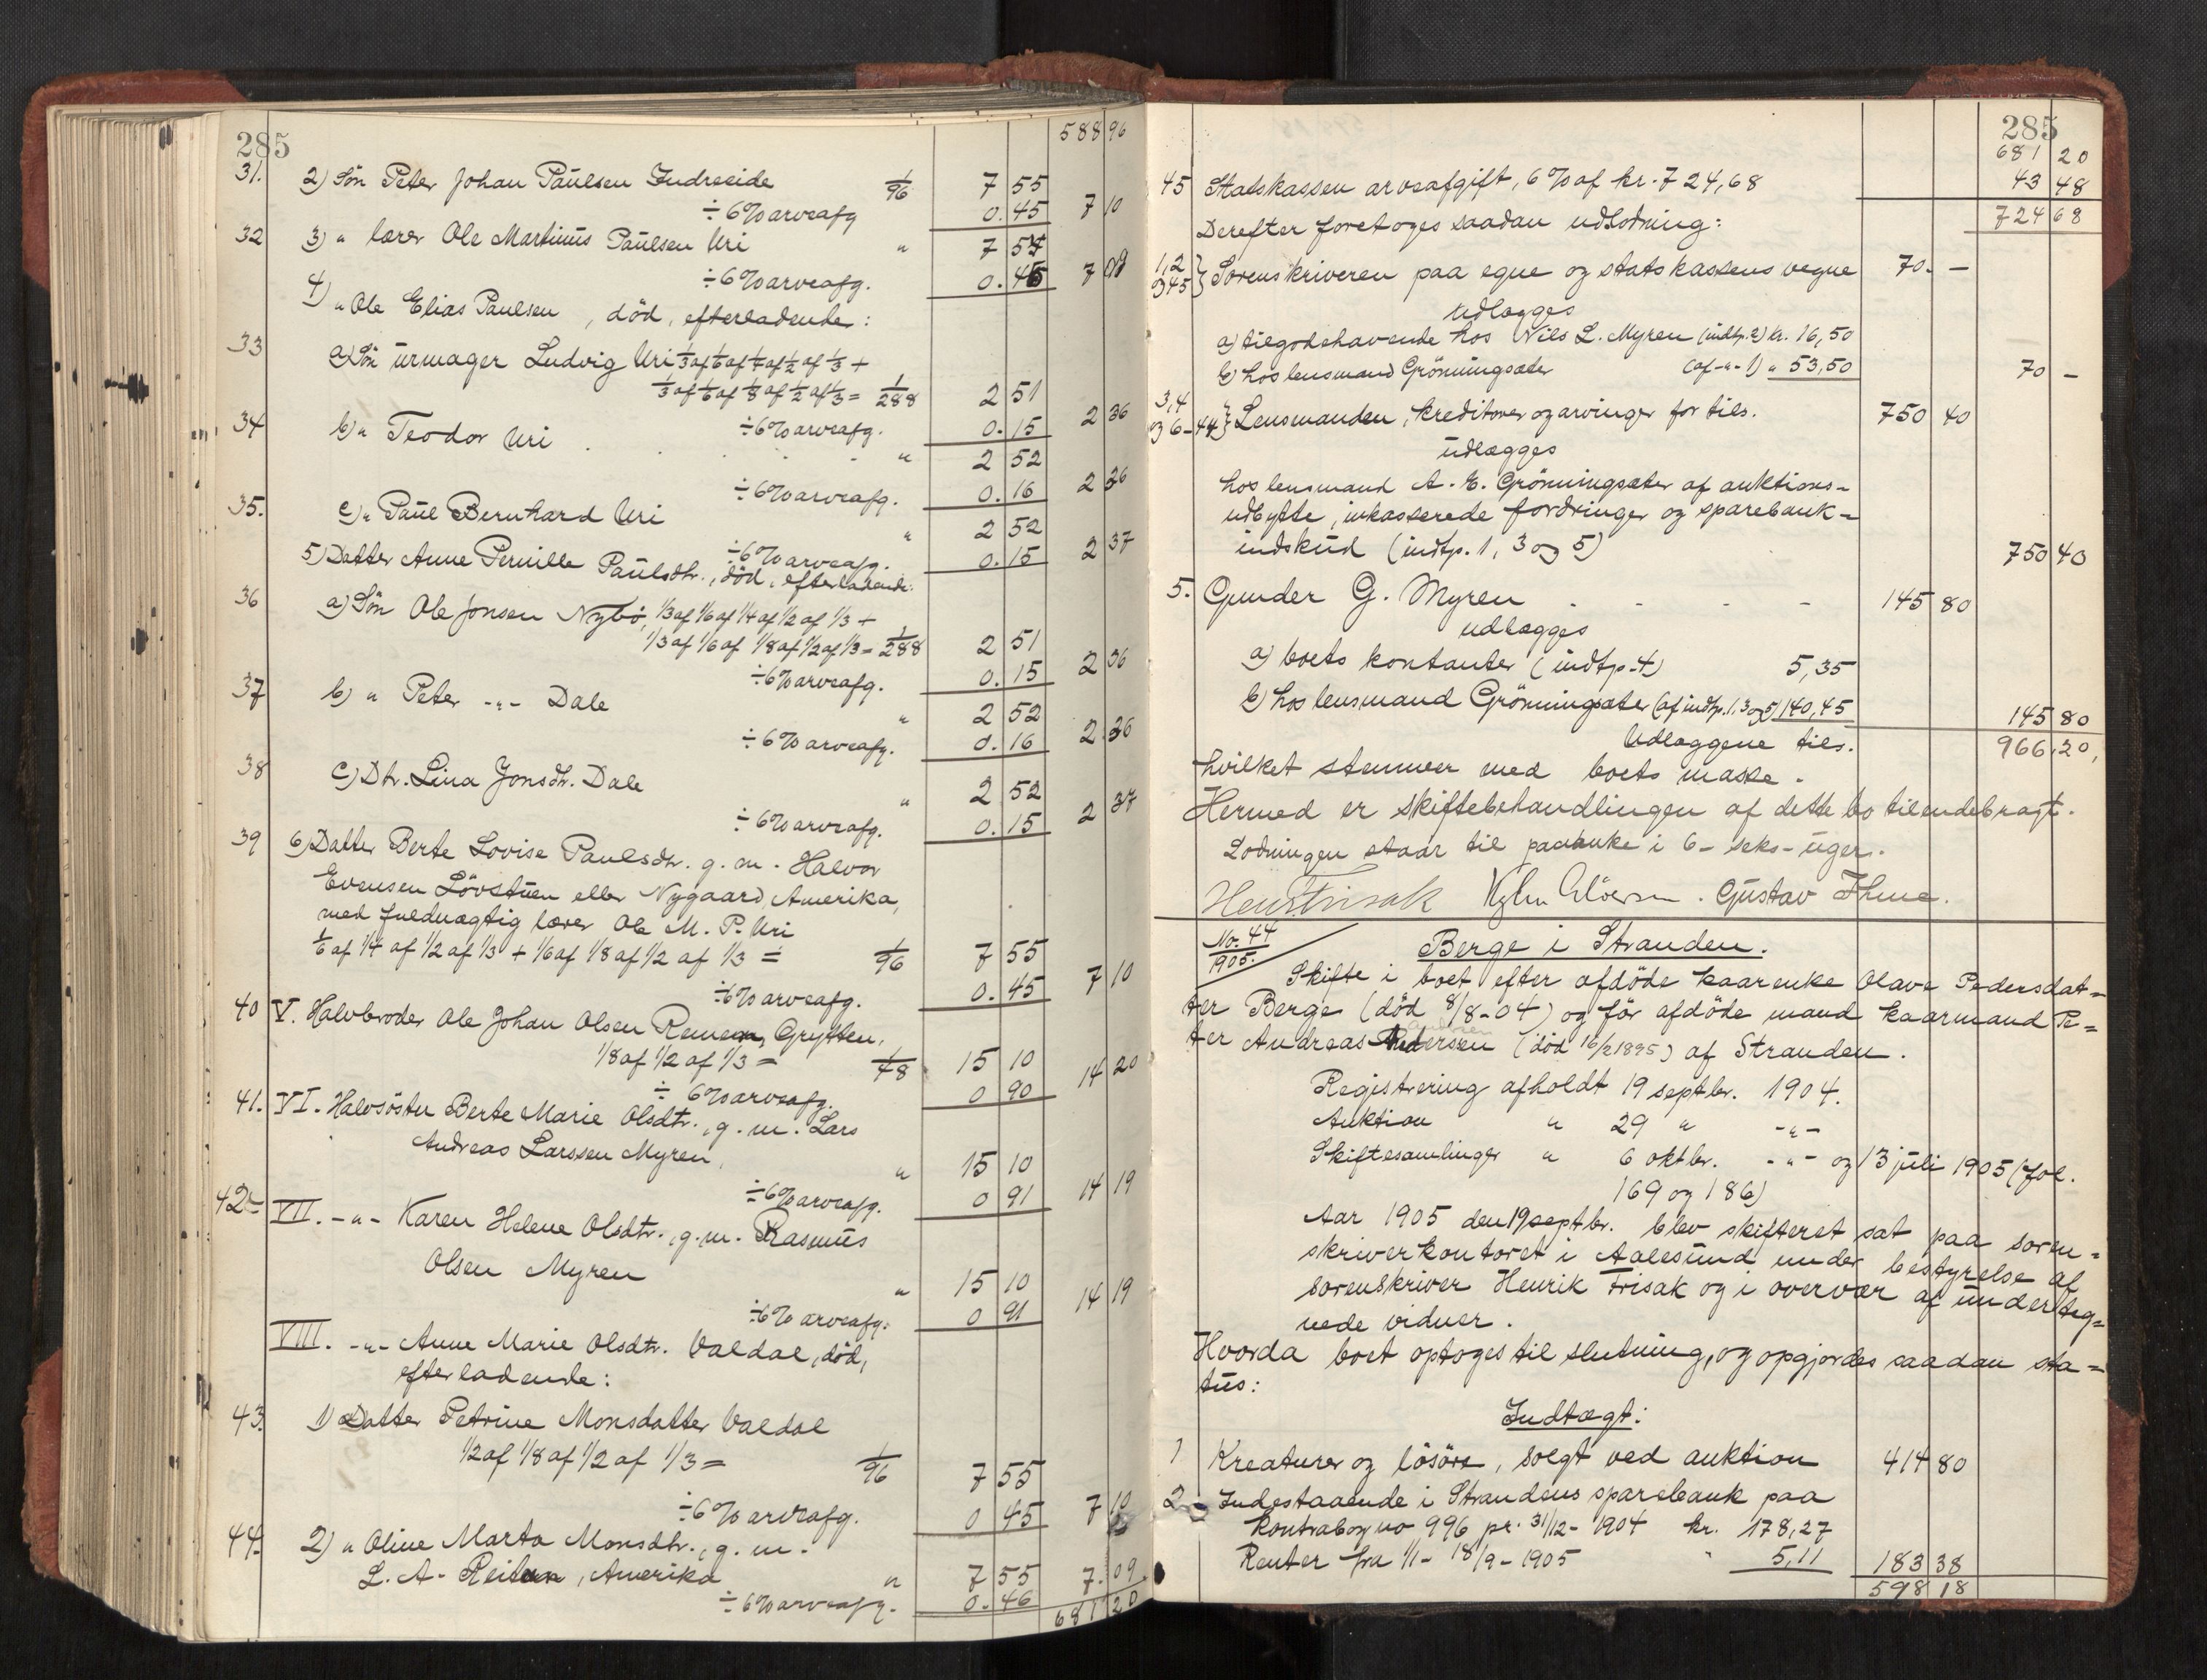 285
588 96
31. 2) Søn Peter Johan Paulsen Indreeide 1/96 7 55
÷ 6% arveafg 0.45 7 10
32 3) " lærer Ole Martinus Paulsen Uri " 7 54
÷ 6% arveafg. 0.46 7 08
4) " Ole Elias Paulsen, död, efterladende:
33 a) Søn urmager Ludvig Uri 1/3 af 1/6 af 1/4 af 1/2 af 1/3 +
1/3 af 1/6 af 1/8 af 1/2 af 1/3 = 1/288 2 51
÷ 6% arveafg. 0.15 2 36
34 b) " Teodor Uri " 2 52
÷ 6% arveafg. 0.16 2 36
35. c) " Paul Bernhard Uri " 2 52
÷ 6% arveafg. 0.15 2 37
5) Datter Anne Pernille Paulsdtr., död, efterladende:
36 a) Søn Ole Jonsen Nybö, 1/3 af 1/6 af 1/4 af 1/2 af 1/3 +
1/3 af 1/6 af 1/8 af 1/2 af 1/3 = 1/288 2 51
÷ 6% arveafg. 0.15 2 36
37 b) " Peter -"- Dale " 2 52
÷ 6% arveafg. 0.16 2 36
38 c) Dtr. Lina Jonsdtr. Dale " 2 52
÷ 6% arveafg. 0.15 2 37
39 6) Datter Berte Lovise Paulsdtr. g. m. Halvor
Evensen Lövstuen eller Nygaard, Amerika,
med fuldmægtig lærer Ole M. P. Uri
1/6 af 1/4 af 1/2 af 1/3 + 1/6 af 1/8 af 1/2 af 1/3 = 1/96 7 55
÷ 6% arveafg. 0.45 7 10
40 V. Halvbroder Ole Johan Olsen Remem, Grytten,
1/8 af 1/2 af 1/3 = 1/48 15 10
÷ 6% arveafg. 0 90 14 20
41. VI. Halvsöster Berte Marie Olsdtr., g. m. Lars
Andreas Larssen Myren, " 15 10
÷ 6% arveafg. 0 91 14 19
42 VII. -"- Karen Helene Olsdtr., g. m. Rasmus
Olsen Myren " 15 10
÷ 6% arveafg. 0 91 14 19
VIII. -"- Anne Marie Olsdtr. Valdal, död,
efterladende:
43. 1) Datter Petrine Monsdatter Valdal
1/2 af 1/8 af 1/2 af 1/3 = 1/96 7 55
÷ 6% arveafg. 0 45 7 10
44. 2) " Oline Marta Monsdtr., g. m.
L. A. Reiten, Amerika " 7 55 7.09
÷ 6% arveafg. 0.46 681 20
285
681 20
45 Statskassen arveafgift, 6% af kr. 724,68 43 48
724 68
Derefter foretoges saadan udlodning:
1,2 og 45 } Sorenskriveren paa egne og statskassens vegne 70. —
udlægges
a) tilgodehavende hos Nils L. Myren (indtp. 2) kr. 16,50
b) hos lensmand Grönningsæter (af -"- 1) " 53,50 70 —
3,4 og 6-44 } Lensmanden, kreditorer og arvinger for tils. 750 40
udlægges
hos lensmand A. E. Grönningsæter af auktions-
udbytte, inkasserede fordringer og sparebank-
indskud (indtp. 1, 3 og 5) 750 40
5. Gunder G. Myren 145 80
udlægges
a) boets kontanter (indtp. 4) 5,35
b) hos lensmand Grönningsæter (af indtp. 1, 3 og 5) 140,45 145 80
Udlæggene tils. 966.20,
hvilket stemmer med boets masse.
Hermed er skiftebehandlingen af dette bo tilendebragt.
Lodningen staar til paaanke i 6- seks- uger.
Gustav Thue.
No. 44
1905.
Berge i Stranden.
Skifte i boet efter afdöde kaarenke Olave Pedersdat=
ter Berge (död 8/8-04) og för afdöde mand kaarmand Pe=
ter Andreas Andersen (död 16/2 1895) af Stranden.
Registrering afholdt 19 septbr. 1904.
Auktion " 29 " -"-
Skiftesamlinger " 6 oktbr. -"- og 13 juli 1905 (fol.
169 og 186)
Aar 1905 den 19 septbr. blev skifteret sat paa soren=
skriverkontoret i Aalesund under bestyrelse af
sorenskriver Henrik Frisak og i overvær af underteg=
nede vidner.
Hvorda boet optoges til slutning, og opgjordes saadan sta=
tus:
Indtægt:
1 Kreaturer og lösöre, solgt ved auktion 414 80
2 Indestaaende i Strandens sparebank paa
kontrabog no 996 pr. 31/12- 1904 kr. 178,27
Renter fra 1/1- 18/9- 1905 " 5,11 183 38
598 18